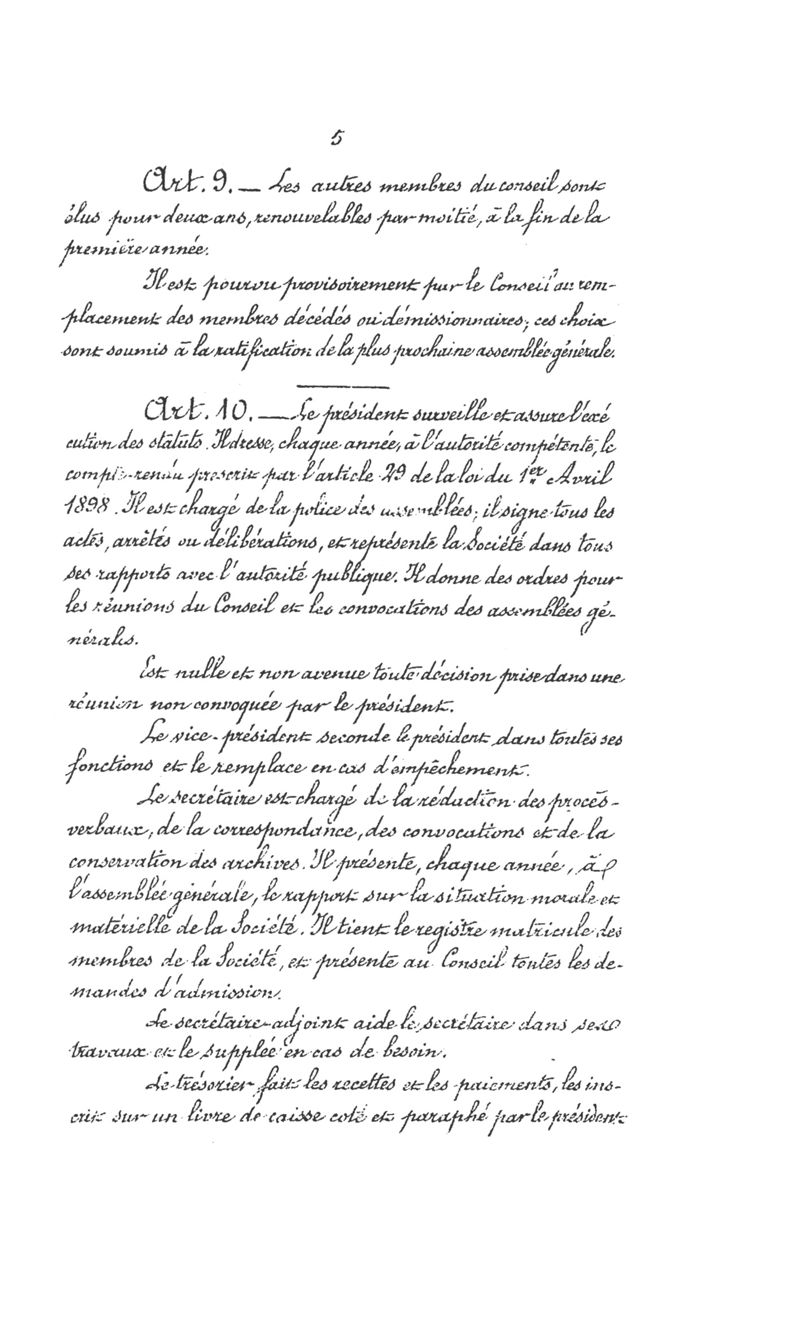 5
Art. 9. — Les autres membres du conseil sont
élus pour deux ans, renouvelables par moitié, à la fin de la
première année.
Il est pourvu provisoirement par le Conseil au rem-
placement des membres décédés ou démissionnaires; ces choix
sont soumis à la ratification de la plus prochaine assemblée générale.
Art. 10. — Le président surveille et assure l'exé
cution des statuts. Il dresse, chaque année, à l'autorité compétente, le
compte-rendu prescrit par l'article 29 de la loi du 1er Avril
1898. Il est chargé de la police des assemblées; il signe tous les
actes, arrêtés ou délibérations, et représente la Société dans tous
ses rapports avec l'autorité publique. Il donne des ordres pour
les réunions du Conseil et les convocations des assemblées gé-
nérales.
Est nulle et non avenue toute décision prise dans une
réunion non convoquée par le président.
Le vice-président seconde le président dans toutes ses
fonctions et le remplace en cas d'empêchement.
Le secrétaire est chargé de la rédaction des procès-
verbaux, de la correspondance, des convocations et de la
conservation des archives. Il présente, chaque année, à
l'assemblée générale, le rapport sur la situation morale et
matérielle de la Société. Il tient le registre matricule des
membres de la Société, et présente au Conseil toutes les de-
mandes d'admission.
Le secrétaire-adjoint aide le secrétaire dans ses
travaux et le supplée en cas de besoin.
Le trésorier fait les recettes et les paiements, les ins-
crit sur un livre de caisse coté et paraphé par le président